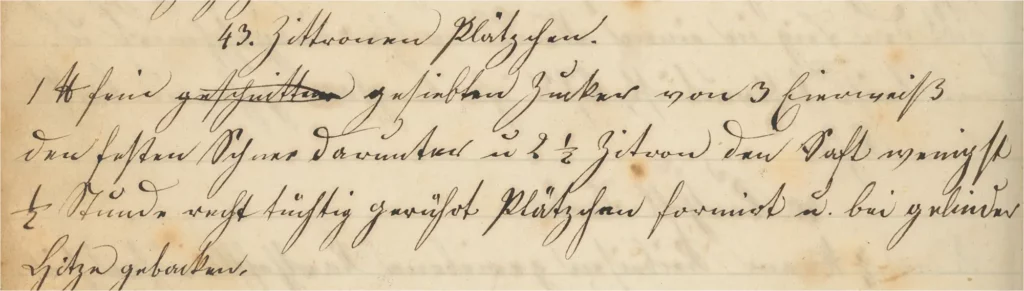 43. Zittronen Plätzchen.
1 ℔ fein geschnitten gesiebten Zucker von 3 Eierweiß
den festen Schnee darunter u 2 ½ Zitron den Saft wenigst
½ Stunde recht tüchtig gerührt Plätzchen formirt u. bei gelinder
Hitze gebacken.